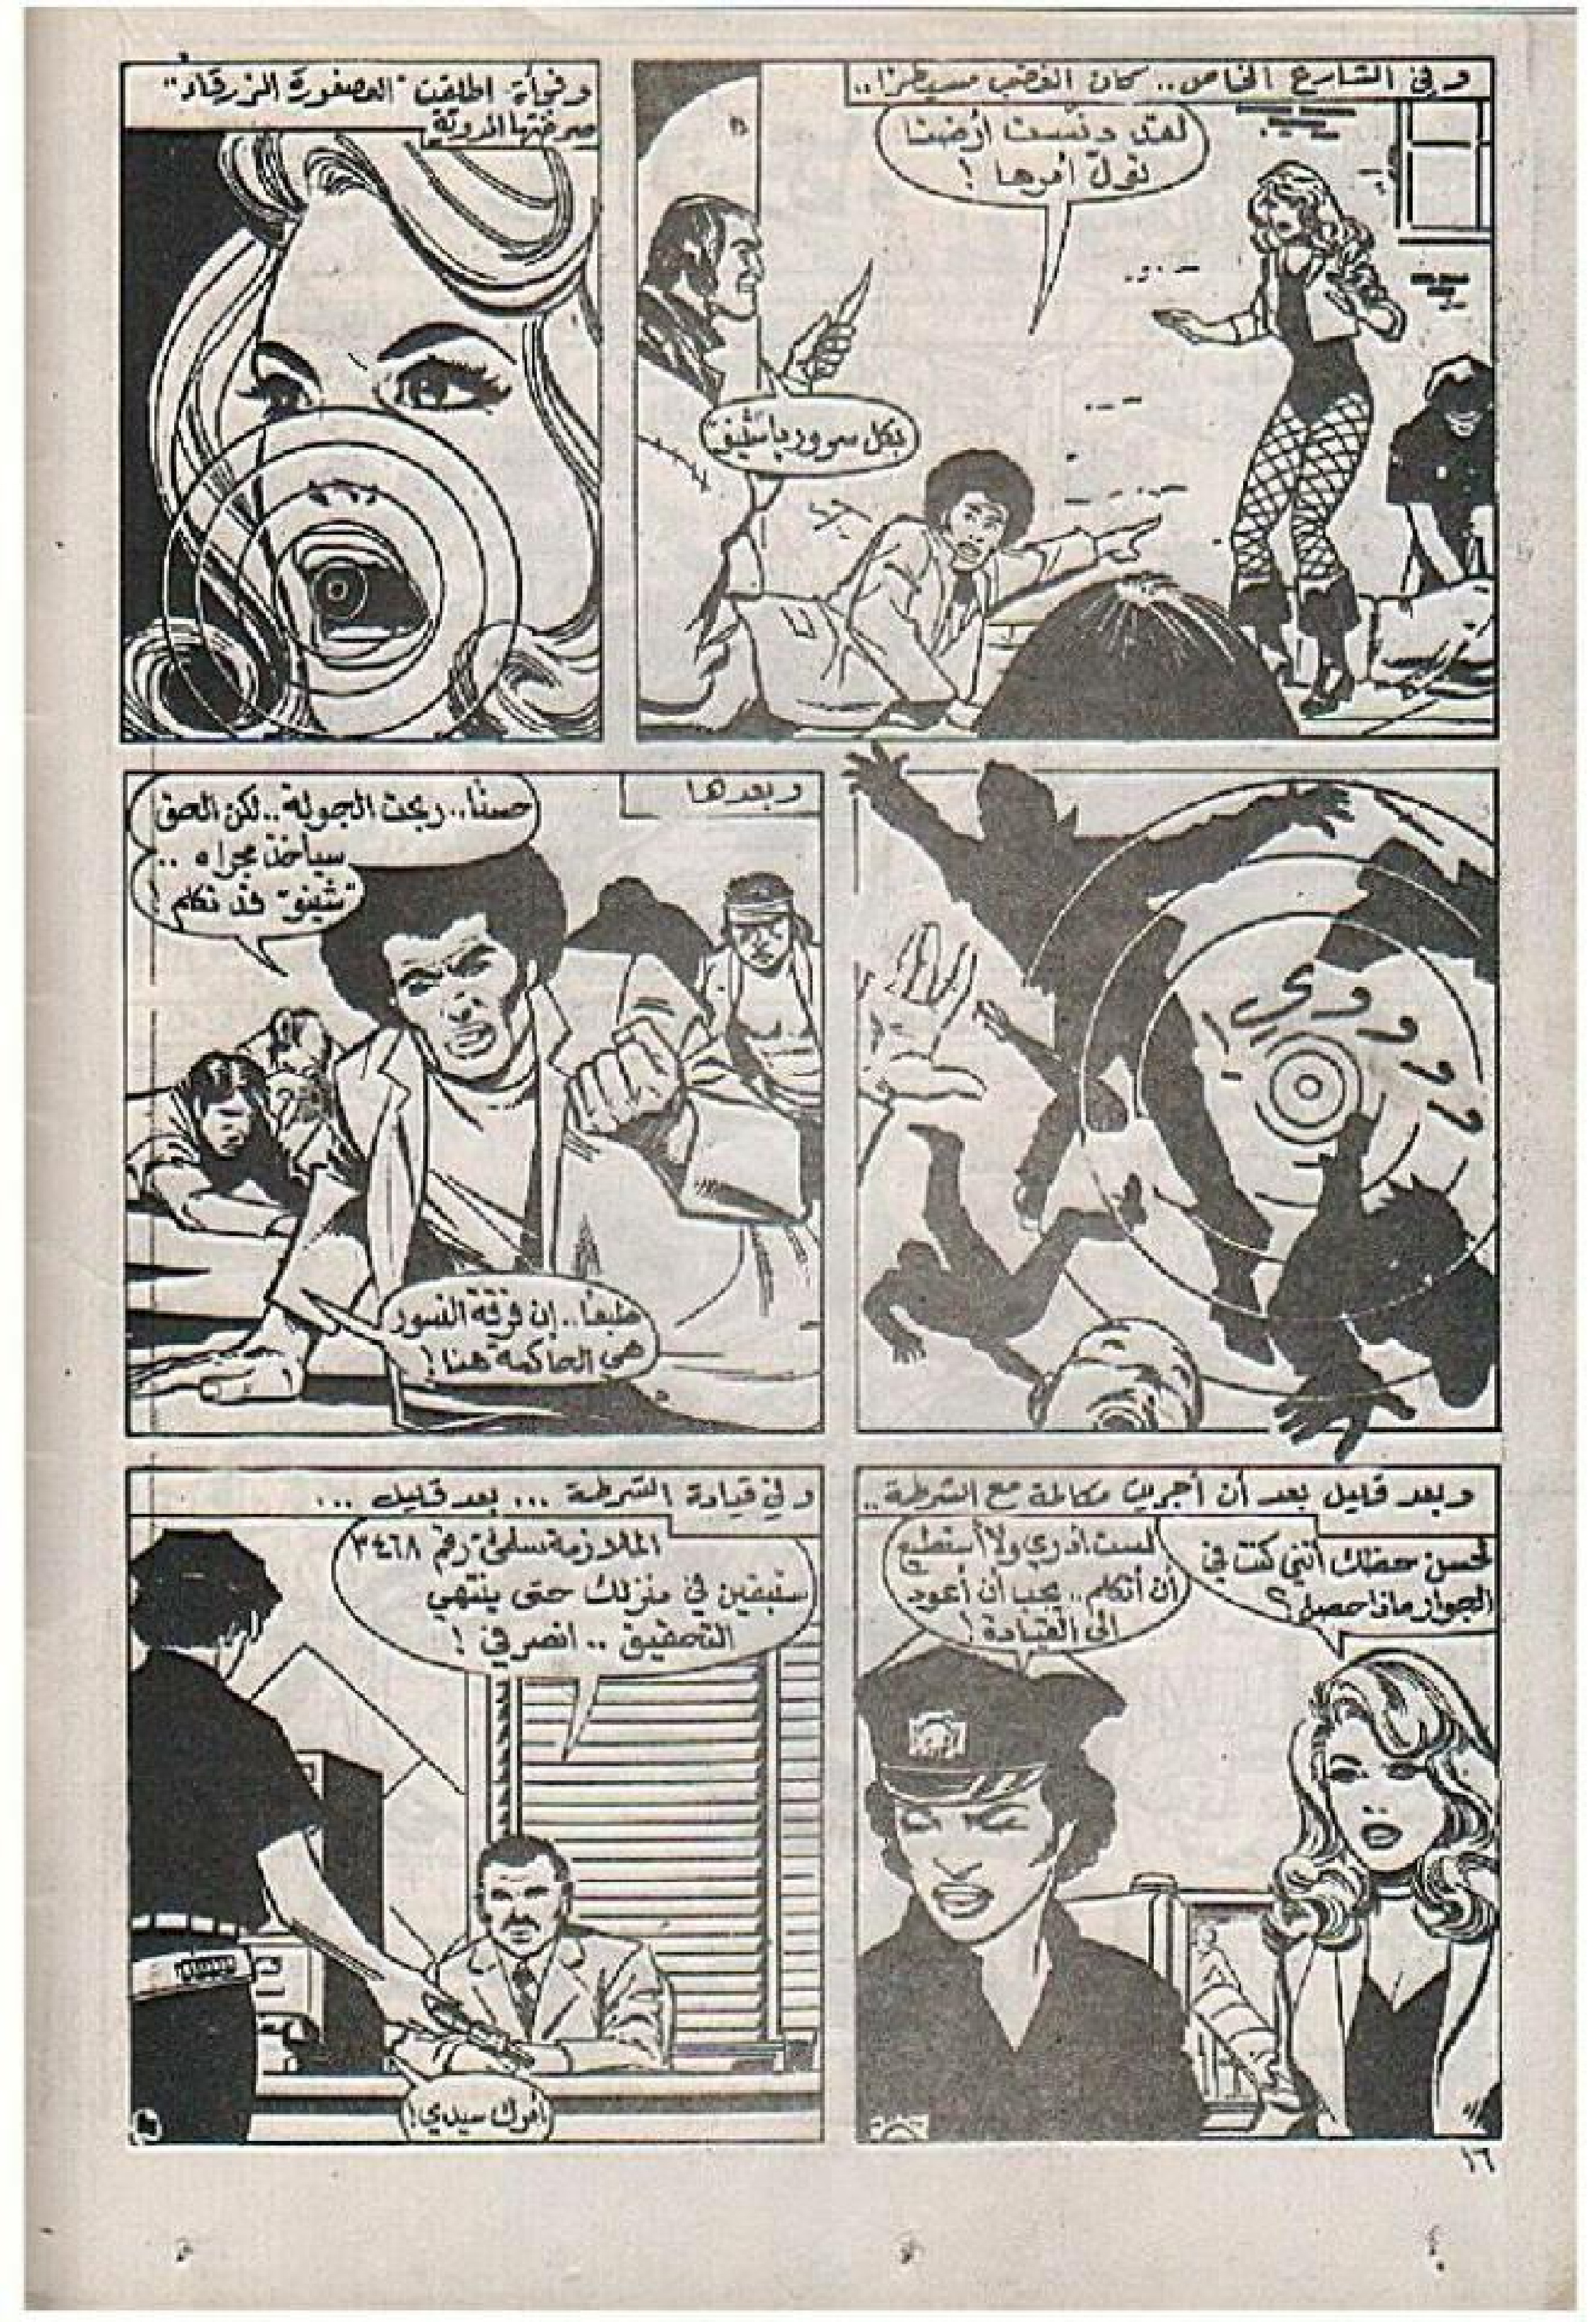 وفي الشارع الخاص.. كان الغضب مسيطرًا..
لقد دنّست أرضنا
تولّ أمرها!
بكل سرور يا "شيفو"
وفجأة اطلقت "العصفورة الزرقاء"
صرختها المدوية
وبعدها
حسنًا.. ربحت الجولة.. لكن الحق
سيأخذ مجراه..
"شيفو" قد تكلم!
طبعًا.. إن فرقة النسور
هي الحاكمة هنا!
وبعد قليل بعد أن أجريت مكالمة مع الشرطة..
لحسن حظك أنني كنت في
الجوار ماذا حصل؟
لست أدري ولا أستطيع
أن أتكلم.. يجب أن أعود
الى القيادة!
وفي قيادة الشرطة ... بعد قليل ...
الملازمة سلمى رقم ٣٤٦٨
ستبقين في منزلك حتى ينتهي
التحقيق.. انصرفي!
أمرك سيدي!
١٦